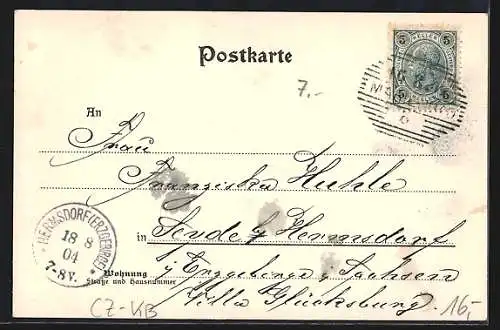 Postkarte
5 HELLER 5
5 5
7.-
An
Frau
Franziska Huhle
in Seyde / Hermsdorf
i/ Erzgebirge i/ Sachsen
Villa Glücksburg.
Wohnung
Straße und Hausnummer
HERMSDORF (ERZGEBIRGE)
18 8
04
7-8V.
*
CZ-KB
16,-